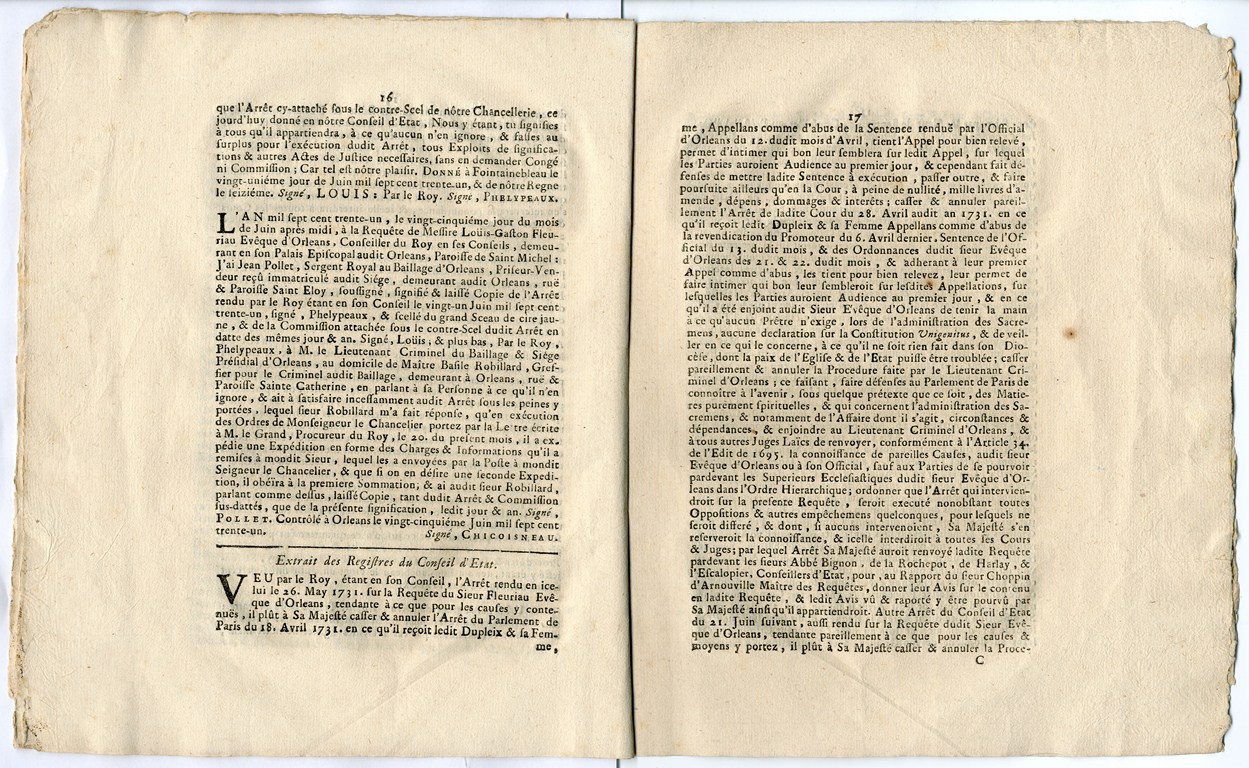 16
que l'Arrêt cy-attaché sous le contre-Scel de nôtre Chancellerie, ce
jourd'huy donné en nôtre Conseil d'Etat, Nous y étant, tu signifies
à tous qu'il appartiendra, à ce qu'aucun n'en ignore, & fasses au
surplus pour l'exécution dudit Arrêt, tous Exploits de significa-
tions & autres Actes de Justice necessaires, sans en demander Congé
ni Commission; Car tel est nôtre plaisir. DONNÉ à Fontainebleau le
vingt-uniéme jour de Juin mil sept cent trente-un, & de nôtre Regne
le seiziéme. Signé, LOUIS: Par le Roy. Signé, PHELYPEAUX.
L'AN mil sept cent trente-un, le vingt-cinquiéme jour du mois
de Juin après midi, à la Requête de Messire Loüis-Gaston Fleu-
riau Evêque d'Orleans, Conseiller du Roy en ses Conseils, demeu-
rant en son Palais Episcopal audit Orleans, Paroisse de Saint Michel:
J'ai Jean Pollet, Sergent Royal au Baillage d'Orleans, Priseur-Ven-
deur reçû immatriculé audit Siége, demeurant audit Orleans, ruë
& Paroisse Saint Eloy, soussigné, signifié & laissé Copie de l'Arrêt
rendu par le Roy étant en son Conseil le vingt-un Juin mil sept cent
trente-un, signé, Phelypeaux, & scellé du grand Sceau de cire jau-
ne, & de la Commission attachée sous le contre-Scel dudit Arrêt en
datte des mêmes jour & an. Signé, Loüis; & plus bas, Par le Roy,
Phelypeaux, à M. le Lieutenant Criminel du Baillage & Siége
Présidial d'Orleans, au domicile de Maître Basile Robillard, Gref-
fier pour le Criminel audit Baillage, demeurant à Orleans, ruë &
Paroisse Sainte Catherine, en parlant à sa Personne à ce qu'il n'en
ignore, & ait à satisfaire incessamment audit Arrêt sous les peines y
portées, lequel sieur Robillard m'a fait réponse, qu'en exécution
des Ordres de Monseigneur le Chancelier portez par la Lettre écrite
à M. le Grand, Procureur du Roy, le 20. du present mois, il a ex-
pédie une Expédition en forme des Charges & Informations qu'il a
remises à mondit Sieur, lequel les a envoyées par la Poste à mondit
Seigneur le Chancelier, & que si on en désire une seconde Expedi-
tion, il obéïra à la premiere Sommation, & ai audit sieur Robillard,
parlant comme dessus, laissé Copie, tant dudit Arrêt & Commission
sus-dattés, que de la présente signification, ledit jour & an. Signé,
POLLET. Contrôlé à Orleans le vingt-cinquiéme Juin mil sept cent
trente-un. Signé, CHICOISNEAU.
Extrait des Registres du Conseil d'Etat.
VEU par le Roy, étant en son Conseil, l'Arrêt rendu en ice-
lui le 26. May 1731. sur la Requête du Sieur Fleuriau Evê-
que d'Orleans, tendante à ce que pour les causes y conte-
nuës, il plût à Sa Majesté casser & annuler l'Arrêt du Parlement de
Paris du 18. Avril 1731. en ce qu'il reçoit ledit Dupleix & sa Fem-
me,
17
me, Appellans comme d'abus de la Sentence renduë par l'Official
d'Orleans du 12. dudit mois d'Avril, tient l'Appel pour bien relevé,
permet d'intimer qui bon leur semblera sur ledit Appel, sur lequel
les Parties auroient Audience au premier jour, & cependant fait dé-
fenses de mettre ladite Sentence à exécution, passer outre, & faire
poursuite ailleurs qu'en la Cour, à peine de nullité, mille livres d'a-
mende, dépens, dommages & interêts; casser & annuler pareil-
lement l'Arrêt de ladite Cour du 28. Avril audit an 1731. en ce
qu'il reçoit ledit Dupleix & sa Femme Appellans comme d'abus de
la revendication du Promoteur du 6. Avril dernier, Sentence de l'Of-
ficial du 13. dudit mois, & des Ordonnances dudit sieur Evêque
d'Orleans des 21. & 22. dudit mois, & adherant à leur premier
Appel comme d'abus, les tient pour bien relevez, leur permet de
faire intimer qui bon leur sembleroit sur lesdites Appellations, sur
lesquelles les Parties auroient Audience au premier jour, & en ce
qu'il a été enjoint audit Sieur Evêque d'Orleans de tenir la main
à ce qu'aucun Prêtre n'exige, lors de l'administration des Sacre-
mens, aucune declaration sur la Constitution Unigenitus, & de veil-
ler en ce qui le concerne, à ce qu'il ne soit rien fait dans son Dio-
cèse, dont la paix de l'Eglise & de l'Etat puisse être troublée; casser
pareillement & annuler la Procedure faite par le Lieutenant Cri-
minel d'Orleans; ce faisant, faire défenses au Parlement de Paris de
connoître à l'avenir, sous quelque prétexte que ce soit, des Matie-
res purement spirituelles, & qui concernent l'administration des Sa-
cremens, & notamment de l'Affaire dont il s'agit, circonstances &
dépendances, & enjoindre au Lieutenant Criminel d'Orleans, &
à tous autres Juges Laïcs de renvoyer, conformément à l'Article 34.
de l'Edit de 1695. la connoissance de pareilles Causes, audit sieur
Evêque d'Orleans ou à son Official, sauf aux Parties de se pourvoir
pardevant les Superieurs Ecclesiastiques dudit sieur Evêque d'Or-
leans dans l'Ordre Hierarchique; ordonner que l'Arrêt qui intervien-
droit sur la presente Requête, seroit executé nonobstant toutes
Oppositions & autres empêchemens quelconques, pour lesquels ne
seroit differé, & dont, si aucuns intervenoient, Sa Majesté s'en
reserveroit la connoissance, & icelle interdiroit à toutes ses Cours
& Juges; par lequel Arrêt Sa Majesté auroit renvoyé ladite Requête
pardevant les sieurs Abbé Bignon, de la Rochepot, de Harlay, &
l'Escalopier, Conseillers d'Etat, pour, au Rapport du sieur Choppin
d'Arnouville Maître des Requêtes, donner leur Avis sur le contenu
en ladite Requête, & ledit Avis vû & raporté y être pourvû par
Sa Majesté ainsi qu'il appartiendroit. Autre Arrêt du Conseil d'Etat
du 21. Juin suivant, aussi rendu sur la Requête dudit Sieur Evê-
que d'Orleans, tendante pareillement à ce que pour les causes &
moyens y portez, il plût à Sa Majesté casser & annuler la Proce-
C